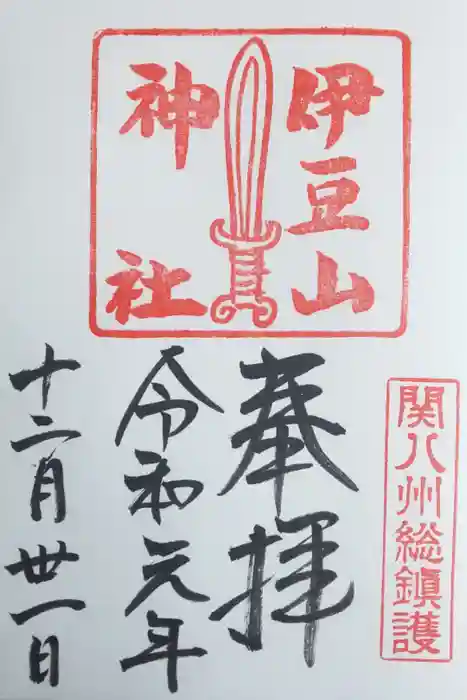 伊豆山
神社
関八州総鎮護
奉拝
令和元年
十二月卅一日